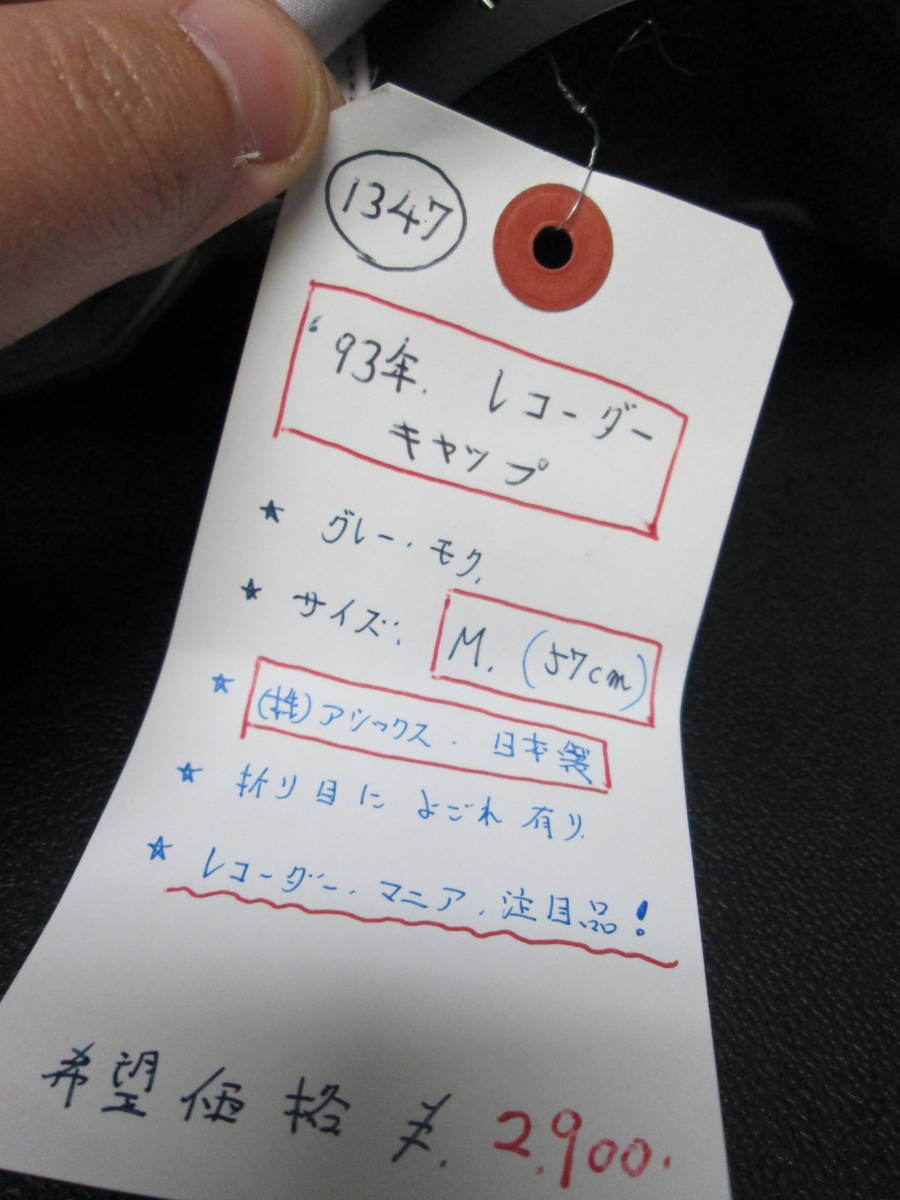 1347
'93年. レコーダー
キャップ
★ グレー・モク.
★ サイズ: M. (57cm)
★ (株)アシックス. 日本製
★ 折り目によごれ有り.
★ レコーダー・マニア. 注目品!
希望価格 ¥. 2,900.